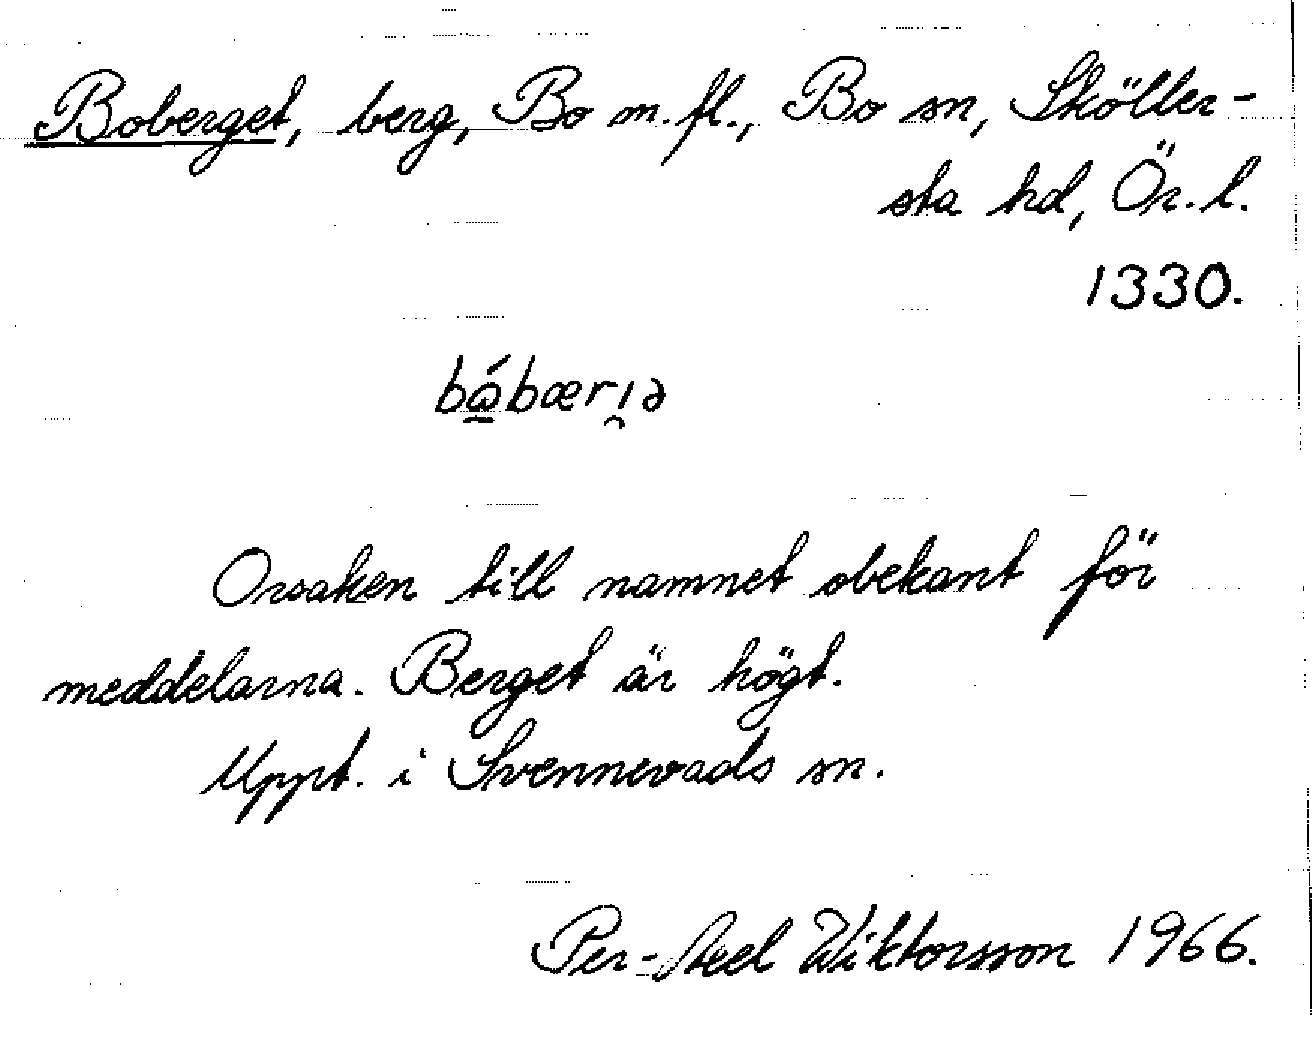 Boberget, berg, Bo m.fl., Bo sn, Sköller-
sta hd, Ör. l.
1330.
Orsaken till namnet obekant för
meddelarna. Berget är högt.
Uppt. i Svennevads sn.
Per-Axel Wiktorsson 1966.